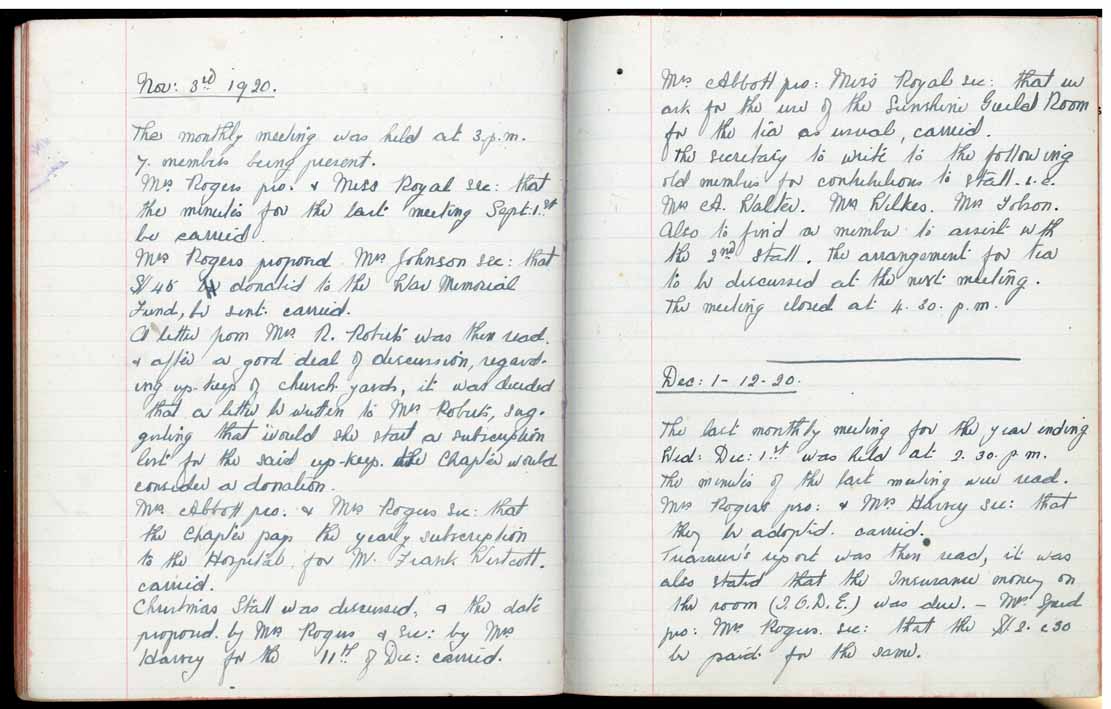 Nov: 3rd 1920.
The monthly meeting was held at 3 p.m.
7. members being present.
Mrs Rogers pro. & Miss Royal sec: that
the minutes for the last meeting Sept. 1st
be carried.
Mrs Rogers propond Mrs Johnson sec: that
donated to the War Memorial
Fund, be sent. carried.
A letter from Mrs R. Roberts was then read.
& after a good deal of discussion, regard-
ing up-keep of church yards, it was decided
that a letter be written to Mrs Roberts, sug-
gesting that would she start a subscription
list for the said up-keep. the Chapter would
consider a donation.
Mrs Abbott pro: & Mrs Rogers sec: that
the Chapter pays the yearly subscription
to the Hospital, for Mr. Frank Westcott.
carried.
Christmas Stall was discussed, & the date
propond. by Mrs Rogers & Sec: by Mrs
Harvey for the 11th of Dec: carried.
Mrs Abbott pro: Miss Royal sec: that we
ask for the use of the Sunshine Guild Room
for the tea as usual, carried.
The secretary to write to the following
old members for contributions to stall. i.e.
Mrs A. Walter. Mrs Wilkes. Mrs Jobson.
Also to find a member to assist with
the 2nd stall. The arrangement for tea
to be discussed at the next meeting.
The meeting closed at 4.30. p.m.
Dec: 1-12-20.
The last monthly meeting for the year ending
Wed: Dec: 1st was held at 2.30. p.m.
The minutes of the last meeting were read.
Mrs Rogers pro: & Mrs Harvey sec: that
they be adopted. carried.
Treasurer's report was then read, it was
also stated that the Insurance money on
the room (I.O.D.E.) was due. - Mrs Speed
pro: Mrs Rogers. sec: that the
be paid for the same.